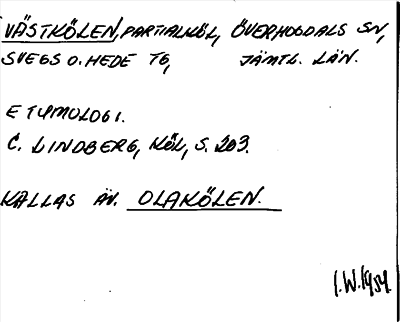 VÄSTKÖLEN, PARTIALKÖL, ÖVERHOGDALS SN,
SVEGS O. HEDE TG, JÄMTL. LÄN.
ETYMOLOGI.
C. LINDBERG, KÖL, S. 203.
KALLAS ÄV. OLAKÖLEN.
I.W.1954.